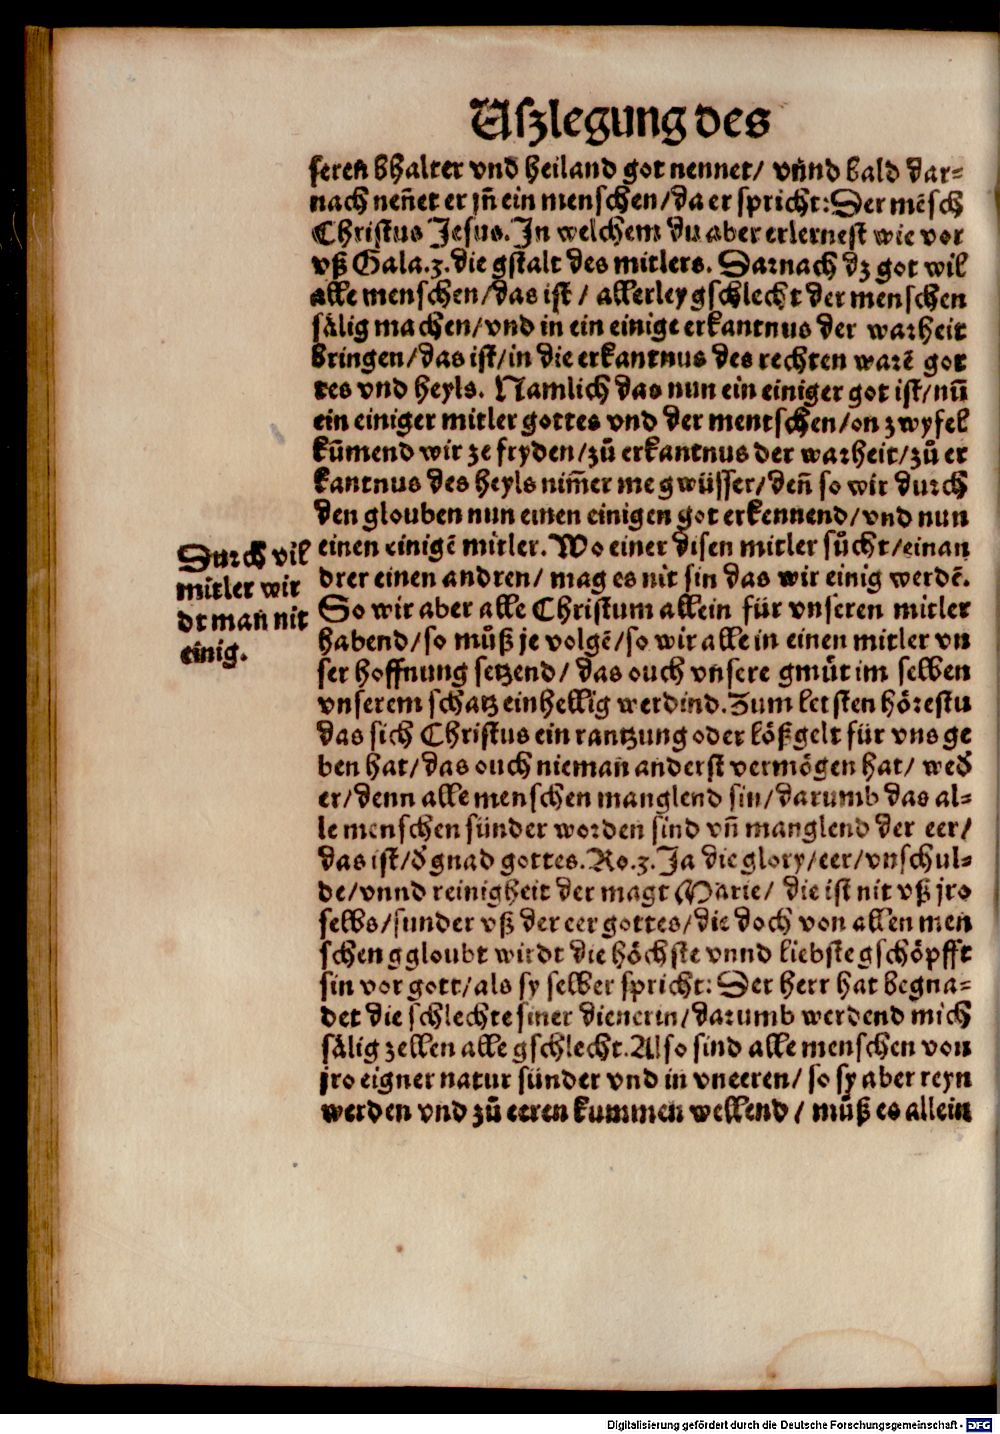 Uszlegung des
seren bhalter vnd heiland got nennet/ vnnd bald dar-
nach nen̄et er jn̄ ein menschen/da er spricht:Der mēsch
Christus Jesus. In welchem du aber erlernest wie vor
vß Gala.3.die gstalt des mitlers. Darnach dz got wil
alle menschen/das ist / allerley gschlecht der menschen
sälig machen/vnd in ein einige erkantnus der warheit
bringen/das ist/in die erkantnus des rechten warē got
tes vnd heyls. Namlich das nun ein einiger got ist/nūn
ein einiger mitler gottes vnd der mentschen/on zwyfel
kūmend wir ze fryden/zů erkantnus der warheit/zů er
kantnus des heyls nim̄er me gwüsser/den̄ so wir durch
den glouben nun einen einigen got erkennend/vnd nun
einen einigē mitler. Wo einer disen mitler sůcht/ein an
drer einen andren/ mag es nit sin das wir einig werdē.
So wir aber alle Christum allein für vnseren mitler
habend/so můß je volgē/so wir alle in einen mitler vn
ser hoffnung setzend/ das ouch vnsere gmůt im selben
vnserem schatz einhellig werdind. Zum letsten hörestu
das sich Christus ein rantzung oder lößgelt für vns ge
ben hat/das ouch nieman anderst vermögen hat/ weď
er/denn alle menschen manglend sin/darumb das al-
le menschen sünder worden sind vn̄ manglend der eer/
das ist/ď gnad gottes. Ro.3. Ja die glory/eer/vnschul-
de/vnnd reinigheit der magt Marie/ die ist nit vß jro
selbs/sunder vß der eer gottes/die doch von allen men
schen ggloubt wirdt die höchste vnnd liebste gschöpfft
sin vor gott/als sy selber spricht: Der herr hat begna-
det die schlechte siner dienerin/darumb werdend mich
sälig zellen alle gschlecht. Also sind alle menschen von
jro eigner natur sünder vnd in vneeren/ so sy aber reyn
werden vnd zů eeren kummen wellend / můß es allein
Durch vil
mitler wir
dt man nit
einig.
Digitalisierung gefördert durch die Deutsche Forschungsgemeinschaft - DFG